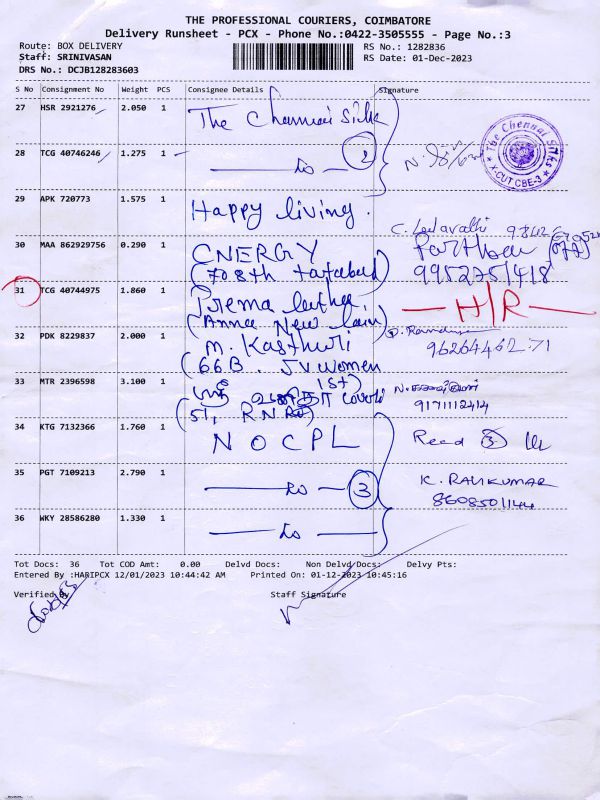 THE PROFESSIONAL COURIERS, COIMBATORE
Delivery Runsheet - PCX - Phone No.:0422-3505555 - Page No.:3
Route: BOX DELIVERY
RS No.: 1282836
Staff: SRINIVASAN
RS Date: 01-Dec-2023
DRS No.: DCJB128283603
S No Consignment No Weight PCS Consignee Details Signature
27 HSR 2921276 2.050 1 The Chennai Silks
28 TCG 40746246 1.275 1 Do 2
The Chennai Silks
X-CUT CBE-3
29 APK 720773 1.575 1 Happy living.
30 MAA 862929756 0.290 1 ENERGY
9952751418
31 TCG 40744975 1.860 1 Prema latha
H/R
(Anna New
32 PDK 8229837 2.000 1 M. Kasthuri
9626446271
(66B. SV women
33 MTR 2396598 3.100 1
9171112414
(51, R.N
34 KTG 7132366 1.760 1 NOCPL Recd 3
35 PGT 7109213 2.790 1 Do 3 K. RAVIKUMAR
8608501144
36 WKY 28586280 1.330 1 Do
Tot Docs: 36 Tot COD Amt: 0.00 Delvd Docs: Non Delvd Docs: Delvy Pts:
Entered By :HARIPCX 12/01/2023 10:44:42 AM Printed On: 01-12-2023 10:45:16
Verified By Staff Signature